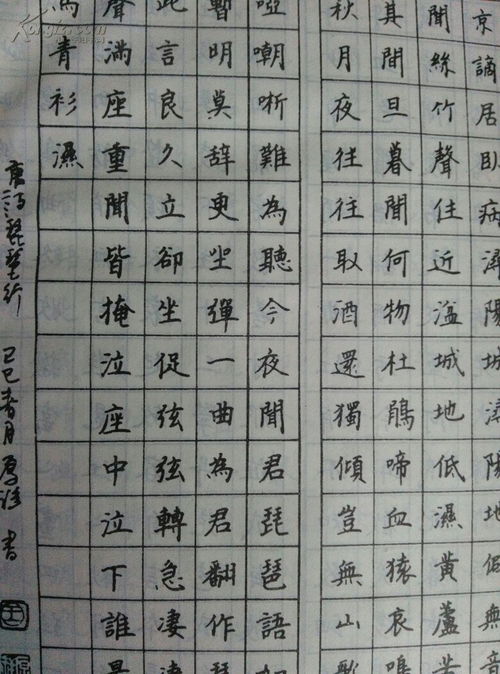 京謫居臥病潯陽城潯陽地僻無音
聞絲竹聲住近湓城地低濕黃蘆苦
其間旦暮聞何物杜鵑啼血猿哀鳴
秋月夜往往取酒還獨傾豈無山歌
啞嘲哳難為聽今夜聞君琵琶語如
暫明莫辞更坐彈一曲為君翻作琵
此言良久立卻坐促弦弦轉急凄凄
聲滿座重聞皆掩泣座中泣下誰最
馬青衫濕
唐詩琵琶行 己巳春月 書